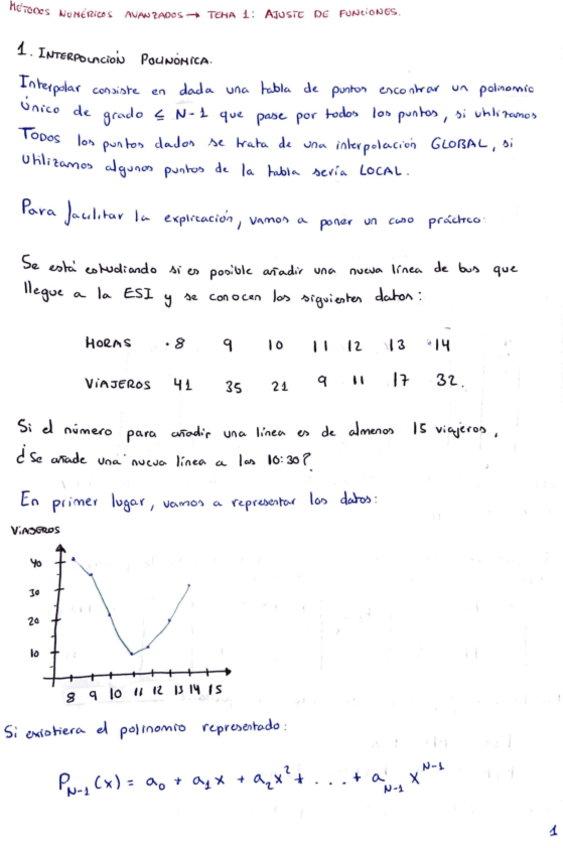 MÉTODOS NUMÉRICOS AVANZADOS → TEMA 1: AJUSTE DE FUNCIONES.
1. INTERPOLACIÓN POLINÓMICA.
Interpolar consiste en dada una tabla de puntos encontrar un polinomio
único de grado ≤ N-1 que pase por todos los puntos, si utilizamos
TODOS los puntos dados se trata de una interpolación GLOBAL, si
utilizamos algunos puntos de la tabla sería LOCAL.
Para facilitar la explicación, vamos a poner un caso práctico:
Se está estudiando si es posible añadir una nueva línea de bus que
llegue a la ESI y se conocen los siguientes datos:
HORAS 8 9 10 11 12 13 14
VIAJEROS 41 35 21 9 11 17 32.
Si el número para añadir una línea es de almenos 15 viajeros,
¿Se añade una nueva línea a las 10:30?
En primer lugar, vamos a representar los datos:
VIAJEROS
40
30
20
10
8 9 10 11 12 13 14 15
Si existiera el polinomio representado:
P_{N-1}(x) = a_0 + a_1 x + a_2 x^2 + ... + a_{N-1} x^{N-1}
1